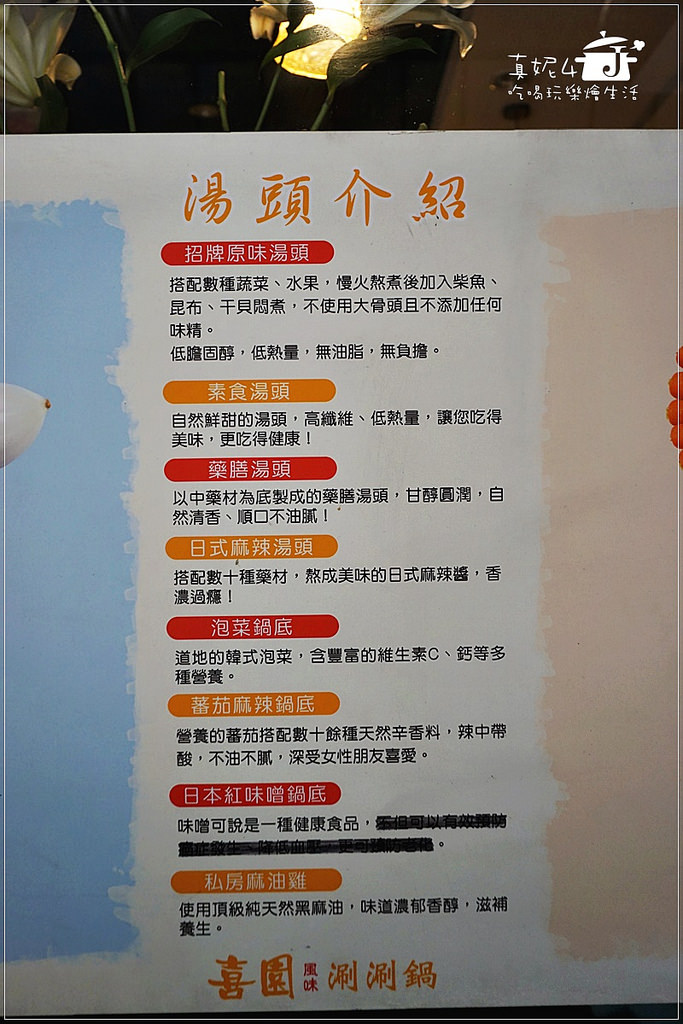 真妮4
吃喝玩樂燴生活
湯頭介紹
招牌原味湯頭
搭配數種蔬菜、水果，慢火熬煮後加入柴魚、
昆布、干貝悶煮，不使用大骨頭且不添加任何
味精。
低膽固醇，低熱量，無油脂，無負擔。
素食湯頭
自然鮮甜的湯頭，高纖維、低熱量，讓您吃得
美味，更吃得健康！
藥膳湯頭
以中藥材為底製成的藥膳湯頭，甘醇圓潤，自
然清香、順口不油膩！
日式麻辣湯頭
搭配數十種藥材，熬成美味的日式麻辣醬，香
濃過癮！
泡菜鍋底
道地的韓式泡菜，含豐富的維生素C、鈣等多
種營養。
蕃茄麻辣鍋底
營養的蕃茄搭配數十餘種天然辛香料，辣中帶
酸，不油不膩，深受女性朋友喜愛。
日本紅味噌鍋底
味噌可說是一種健康食品，不但可以有效預防
癌症發生、降低血壓，更可預防老化。
私房麻油雞
使用頂級純天然黑麻油，味道濃郁香醇，滋補
養生。
喜園風味涮涮鍋